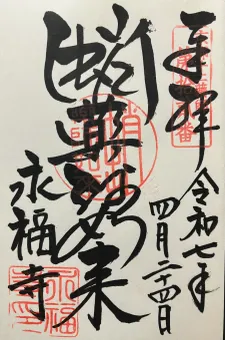 奉拝
令和七年
四月二十四日
蛸薬師如来
永福寺